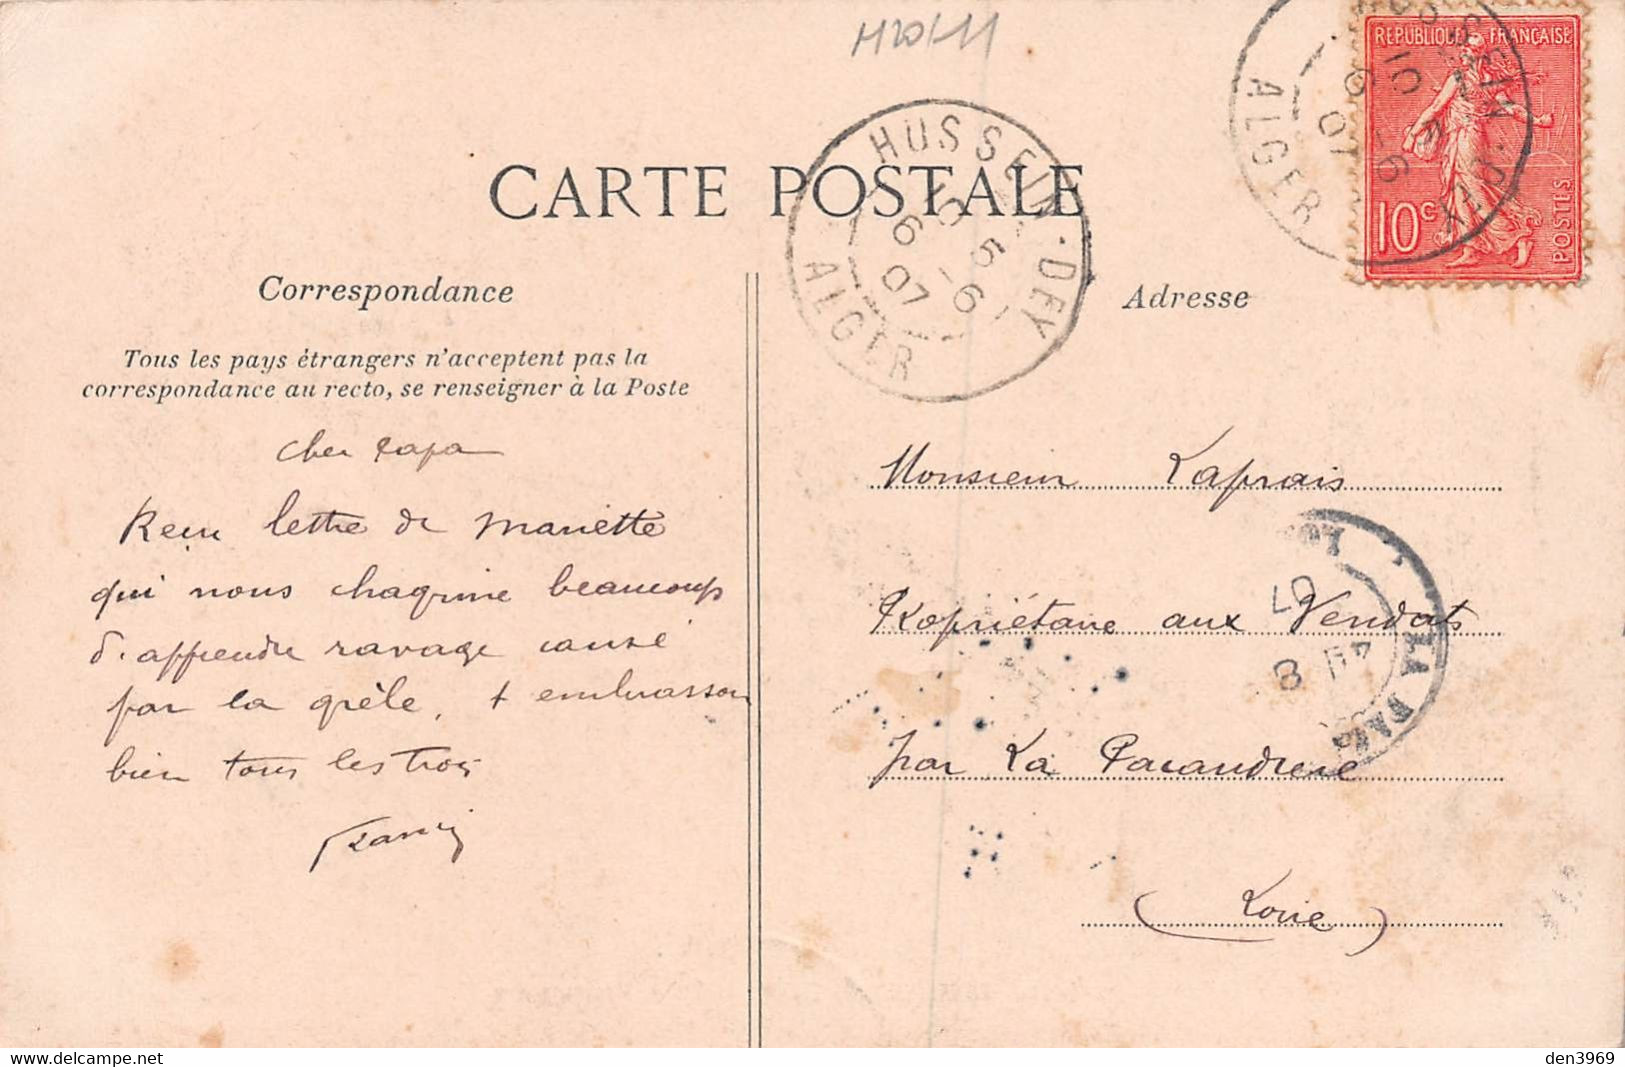 H20/11
REPUBLIQUE FRANÇAISE
10c
POSTES
HUSSEIN-DEY
ALGER
CARTE POSTALE
HUSSEIN-DEY
10 5
6 -6
07
ALGER
Correspondance
Adresse
Tous les pays étrangers n'acceptent pas la
correspondance au recto, se renseigner à la Poste
Cher Papa
Reçu lettre de Mariette
qui nous chagrine beaucoup
d'apprendre ravage causé
par la grèle, + embrasson
bien tous les trois
Monsieur Laprais
Propriétaire aux Vendats
par La Pacaudiere
(Loire)
LA PA
8
07
den3969